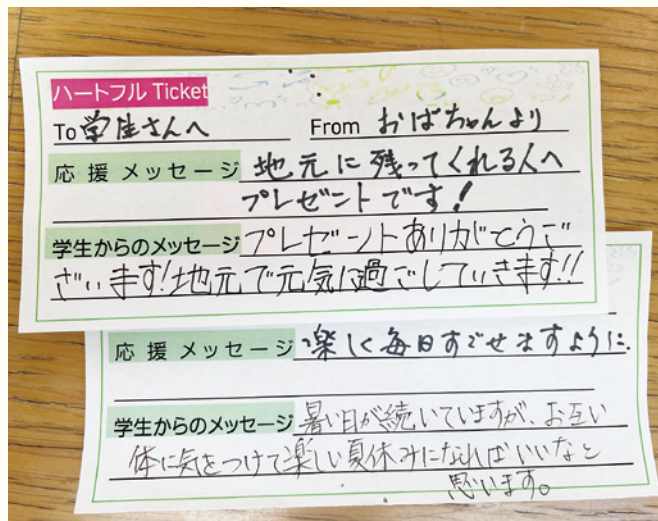 ハートフル Ticket
To 学生さんへ From おばちゃんより
応援メッセージ 地元に残ってくれる人へ
プレゼントです!
学生からのメッセージ プレゼントありがとうご
ざいます!地元で元気に過ごしていきます!!
応援メッセージ 楽しく毎日すごせますように.
学生からのメッセージ 暑い日が続いていますが、お互い
体に気をつけて楽しい夏休みになればいいなと
思います。